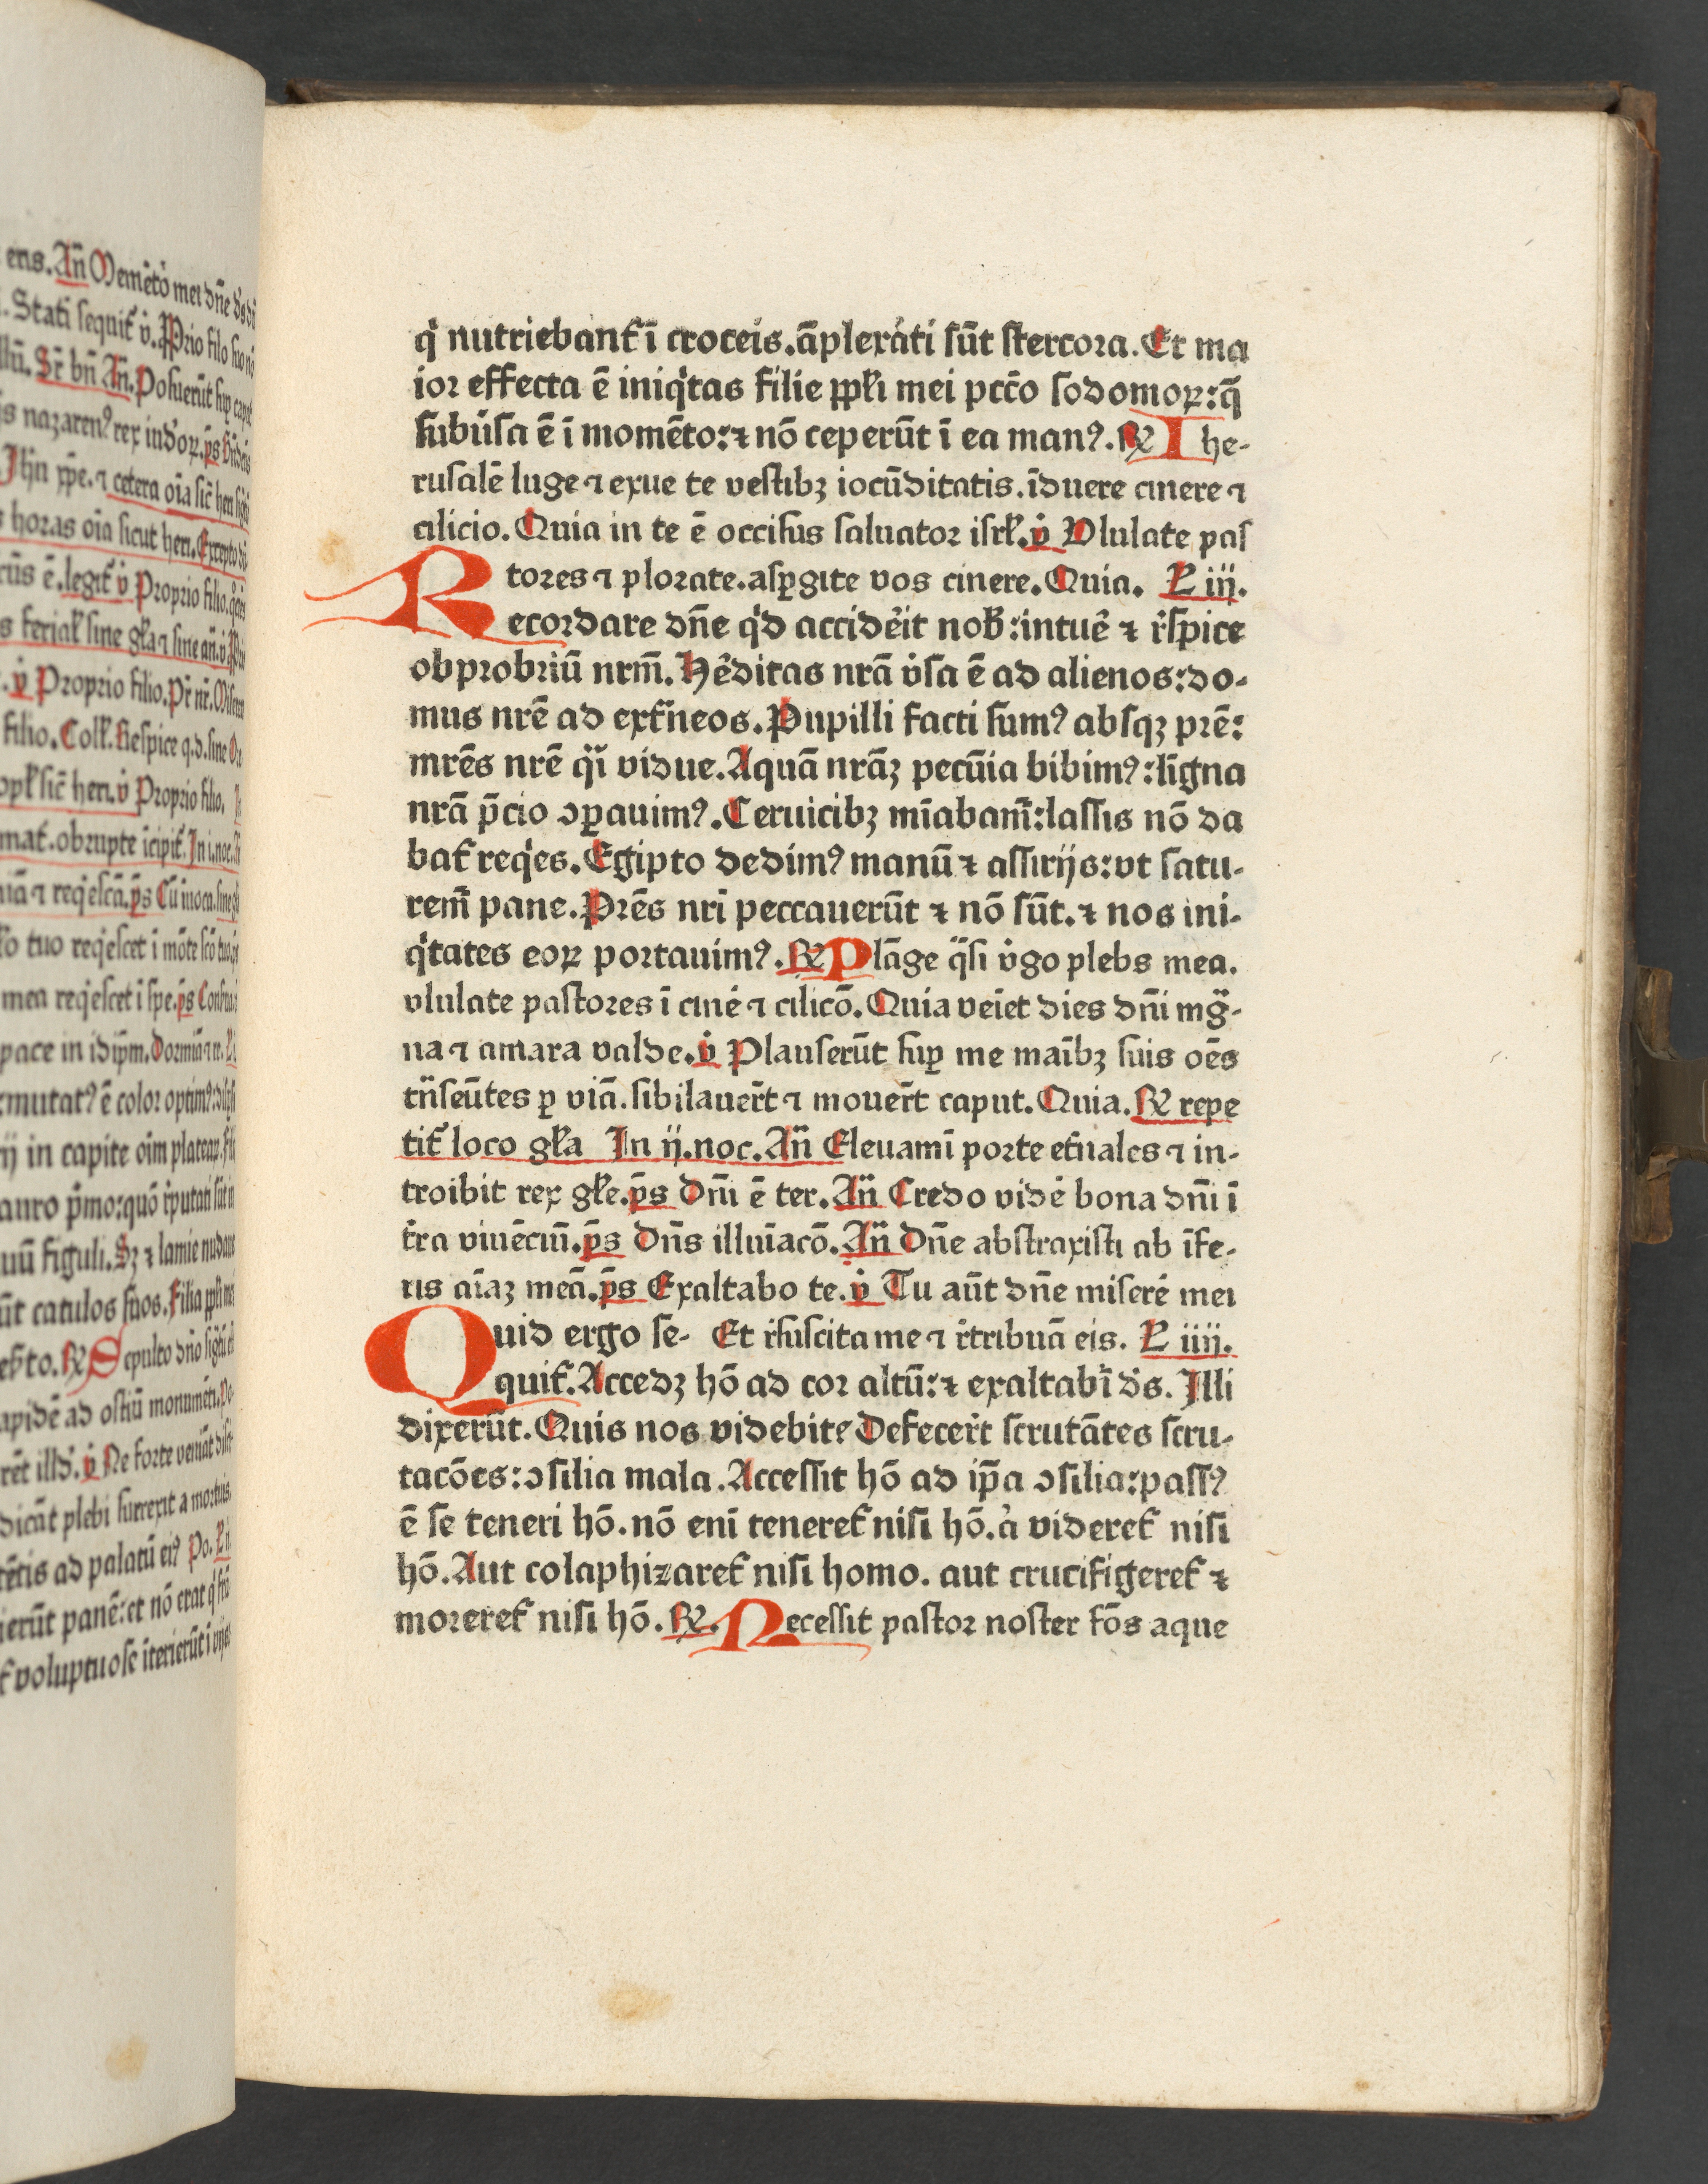 ens. An̄ Memēto mei dn̄e
Stati sequit̄ v̇. Prio filo suo nō
Sr̄ bn̄ An̄. Posuerūt sup caput
nazarenꝰ rex iudoꝝ. ps̄
Jhū xp̄e. ⁊ cetera oīa sic̄ heri
horas oīa sicut heri. Excepto
ē. legit̄ v̇ Proprio filio.
ferial̄ sine gl̄a ⁊ sine an̄. v̇
v̇ Proprio filio. Pr̄ nr̄. Miserere
filio. Coll̄. Respice q. d. sine
sic̄ heri. v̇ Proprio filio.
obrupte īcipit̄. In i. noc.
⁊ reqˈescā. ps̄ Cū īuoca. sine
tuo reqˈescet ī mōte scō tuo
mea reqˈescet ī spe. ps̄ Conserua
pace in idip̄m. Dormiā ⁊ re.
mutatꝰ ē color optimꝰ:
in capite oīm plateaꝝ.
auro p̄mo: quō rˈputati sūt
figuli. Sꝫ ⁊ lamie nudaue
catulos suos. Filia ppl̄i mei
℟ Sepulto dn̄o
lapidē ad ostiū monumēti.
illd̄. v̇ Ne forte veniāt
dicāt plebi surrexit a mortuis.
ad palatū eiꝰ Po.
panē: et nō erat qˈ
voluptuose īterierūt ī vijs
qˈ nutriebant̄ ī croceis. āplexāti sūt stercora. Et ma
ior effecta ē iniqˈtas filie ppl̄i mei pcc̄o sodomoꝝ: q̄
subūsa ē ī momēto: ⁊ nō ceperūt ī ea manꝰ. ℟ Ihe-
rusalē luge ⁊ exue te vestibꝫ iocūditatis. īduere cinere ⁊
cilicio. Quia in te ē occisus saluator isrl̄. v̇ Vlulate pas
tores ⁊ plorate. asꝑgite vos cinere. Quia. L iij.
Recordare dn̄e qˈd accidēit nob̄: intuē ⁊ rˈspice
obprobriū nrm̄. Hēditas nrā v̇sa ē ad alienos: do-
mus nrē ad ext̄neos. Pupilli facti sumꝰ absqꝫ prē:
mrēs nrē qˈi vidue. Aquā nrāꝫ pecūia bibimꝰ: līgna
nrā p̄cio ↄꝑauimꝰ. Ceruicibꝫ mīabam̄: lassis nō da
bat̄ reqˈes. Egipto dedimꝰ manū ⁊ assirijs: vt satu-
rem̄ pane. Prēs nri peccauerūt ⁊ nō sūt. ⁊ nos ini-
qˈtates eoꝝ portauimꝰ. ℟ Plāge q̈si v̇go plebs mea.
vlulate pastores ī cinē ⁊ cilicō. Quia veīet dies dn̄i mg̈-
na ⁊ amara valde. v̇ Planserūt suꝑ me maībꝫ suis oēs
trn̈seūtes ꝑ viā. sibilauer̄t ⁊ mouer̄t caput. Quia. ℟ repe
tit̄ loco gl̄a In ij. noc. An̄ Eleuamī porte et̄nales ⁊ in-
troibit rex gl̄e. ps̄ Dn̄i ē ter. An̄ Credo vidē bona dn̄i ī
tˈra viuēciū. ps̄ Dn̄s illuīacō. An̄ Dn̄e abstraxisti ab īfe-
ris aīaꝫ meā. ps̄ Exaltabo te. v̇ Tu aūt dn̄e miserē mei
Quid ergo se- Et rˈsuscita me ⁊ rˈtribuā eis. L iiij.
quit̄. Accedꝫ hō ad cor altū: ⁊ exaltabī d̄s. Illi
dixerūt. Quis nos videbit? Defecer̄t scrutātes scru-
tacōes: ↄsilia mala. Accessit hō ad ip̄a ↄsilia: passꝰ
ē se teneri hō. nō enī teneret̄ nisi hō. ȧ videret̄ nisi
hō. Aut colaphizaret̄ nisi homo. aut crucifigeret̄ ⁊
moreret̄ nisi hō. ℟. Recessit pastor noster fōs aque